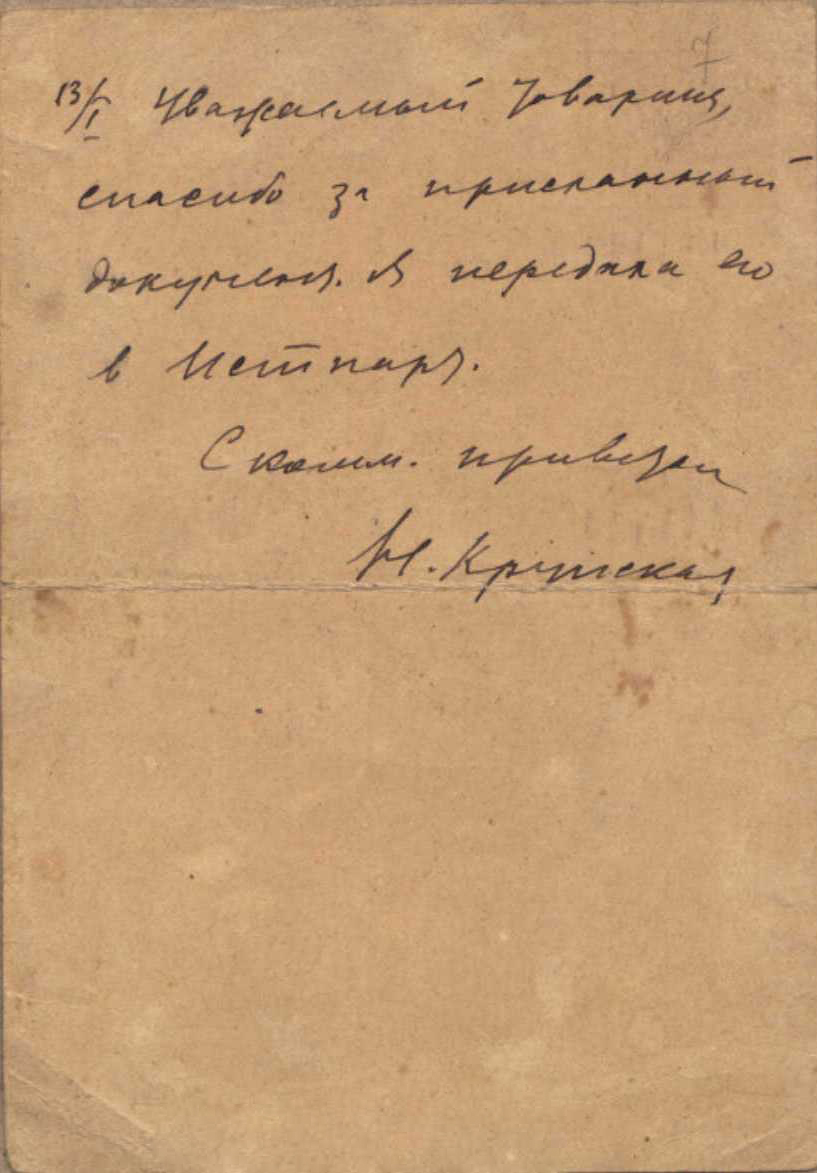 7
13/I Уважаемый товарищ,
спасибо за присланный
документ. Я передала его
в Истпарт.
С комм. приветом
Н. Крупская